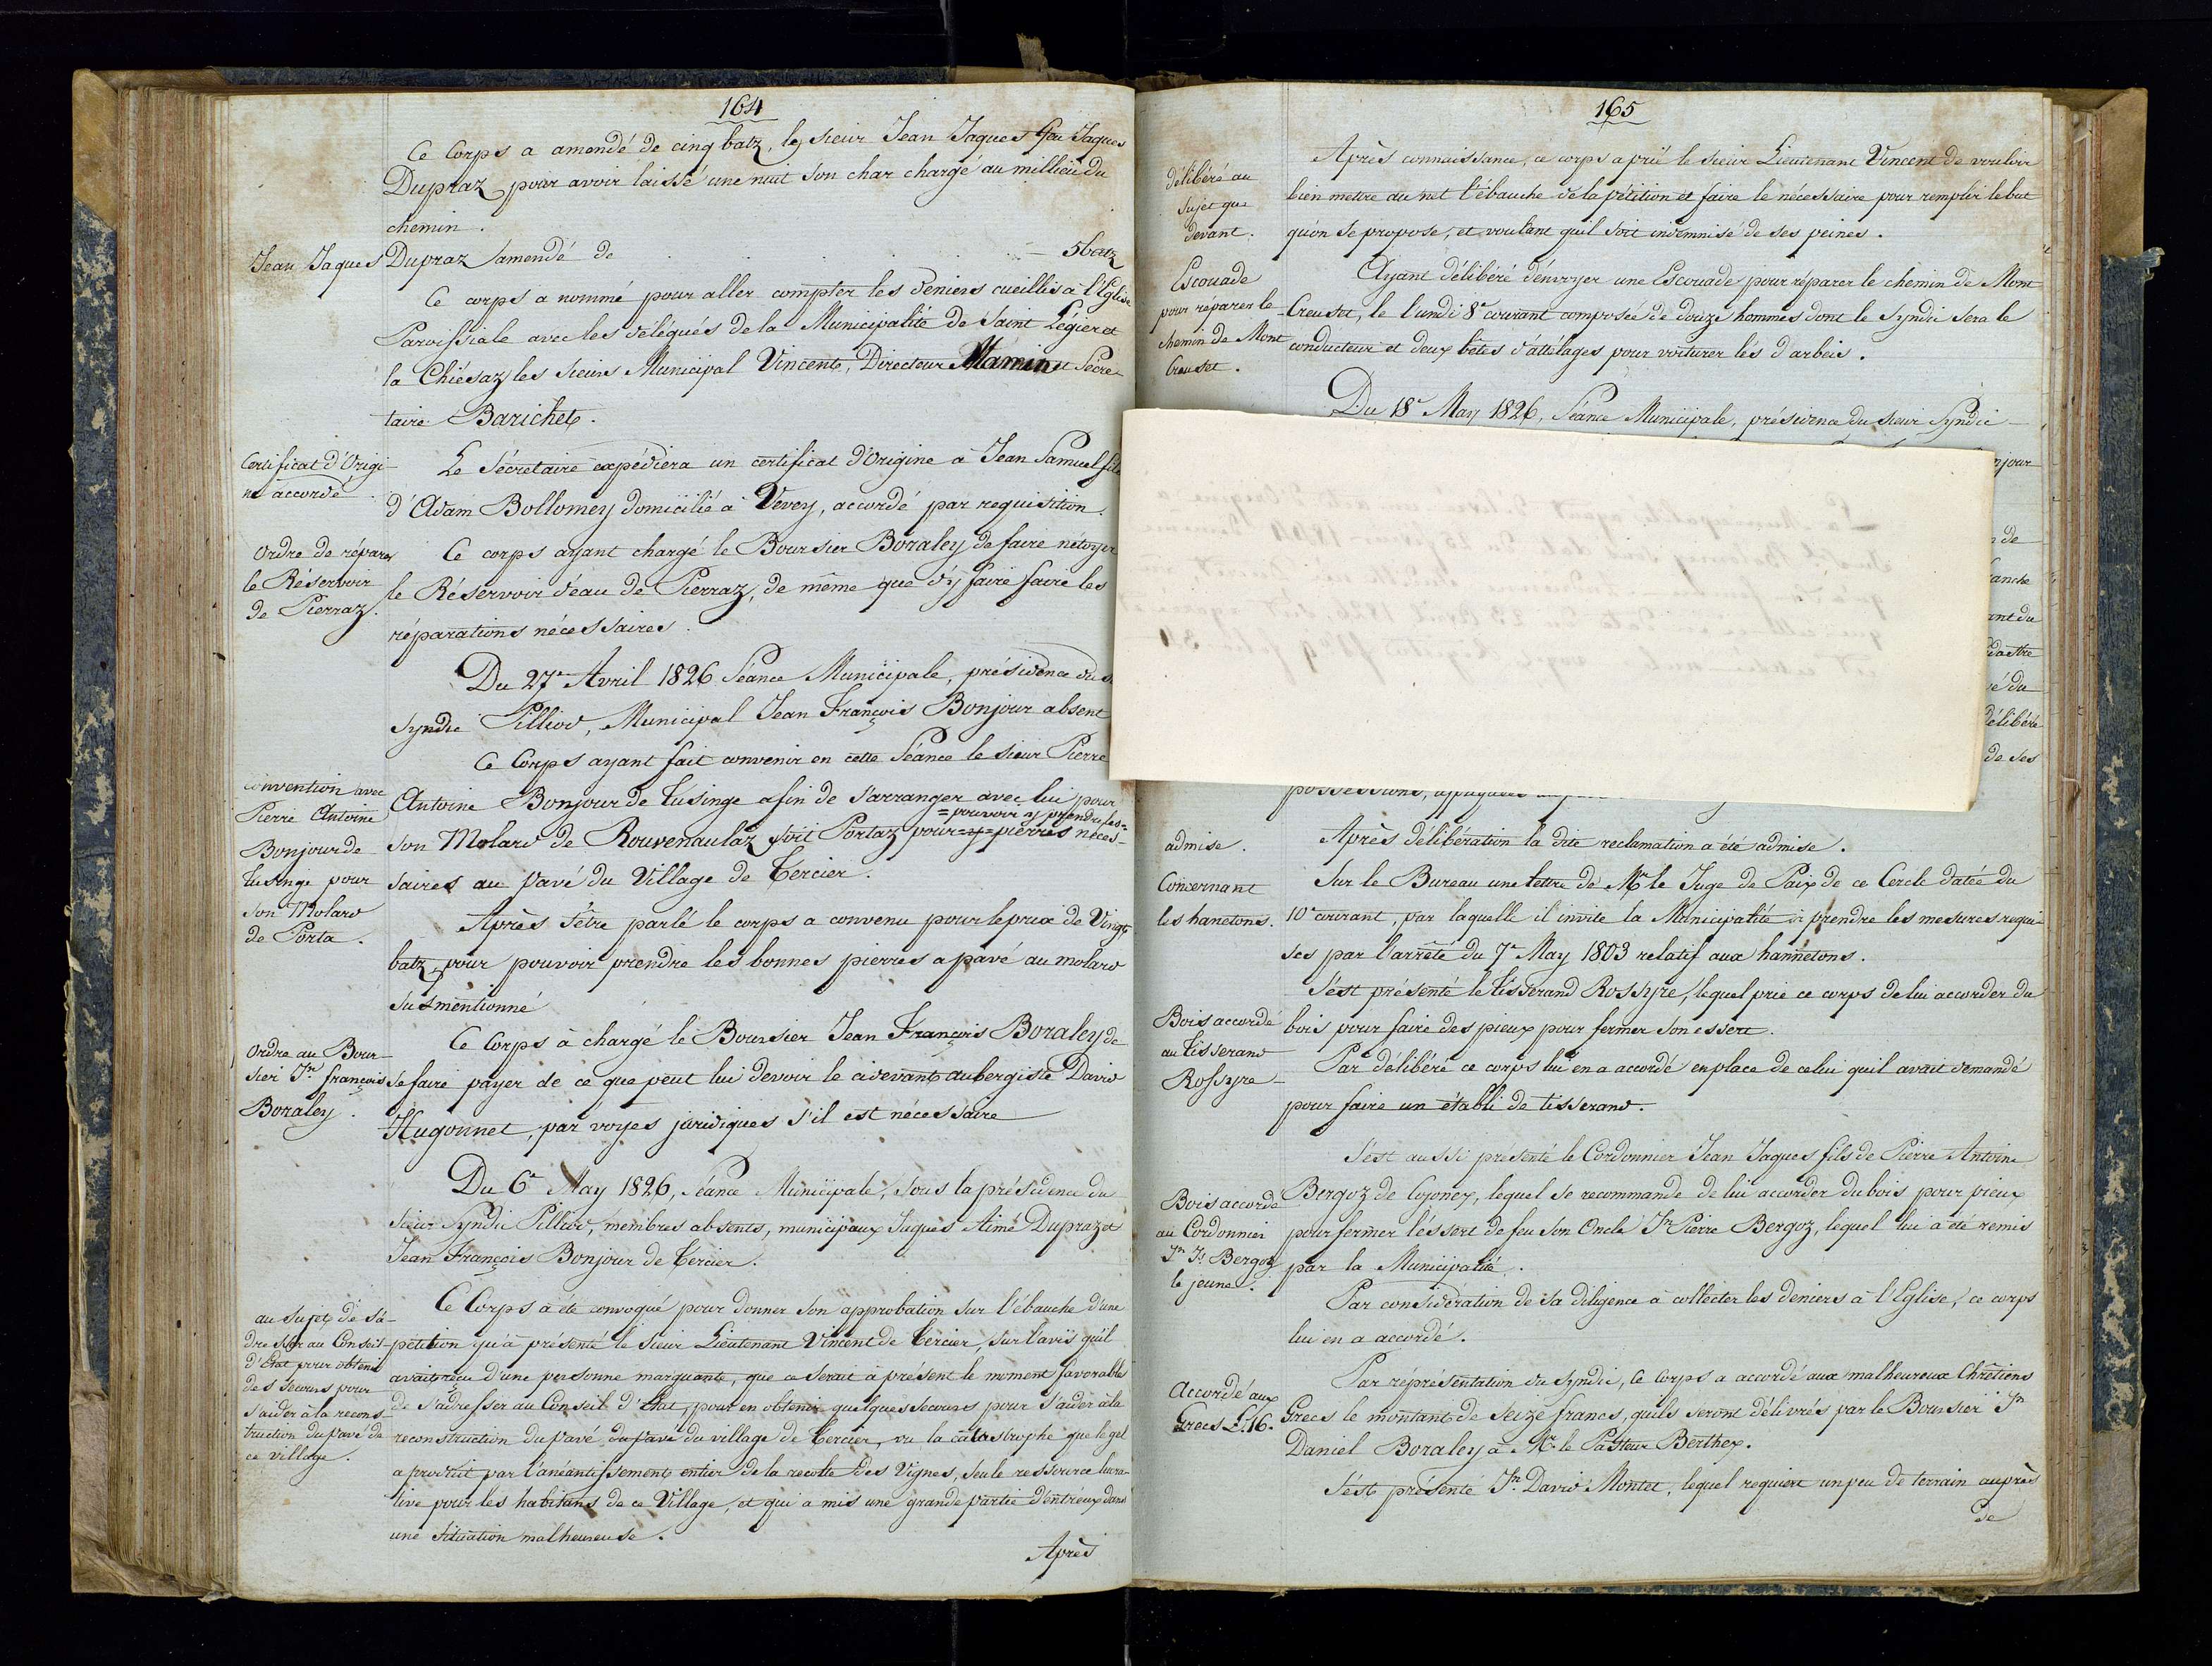 164
Ce Corps a amendé de cinq batz, le sieur Jean Jaques feu Jaques
Dupraz pour avoir laissé une nuit son char chargé au millieu du
chemin.
Jean Jaques Dupraz amendé de 5 batz
Ce corps a nommé pour aller compter les deniers cueillis à l'Eglise
Paroissiale avec les délégués de la Municipalité de Saint Légier et
la Chiésaz les sieurs Municipal Vincent, Directeur Mamin et Secre-
taire Barichet.
Certificat d'Origi-
ne accordé
Le Sécretaire expédiera un certificat d'Origine à Jean Samuel fils
d'Adam Bollomey domicilié à Vevey, accordé par requisition.
Ordre de réparer
le Réservoir
de Pierraz.
Ce corps ayant chargé le Boursier Boraley de faire nétoyer
le Réservoir d'eau de Pierraz, de même que d'y faire faire les
réparations nécessaires.
Du 27e Avril 1826 Séance Municipale, présidence du
Syndic Pilliod, Municipal Jean François Bonjour absent
Ce Corps ayant fait convenir en cette Séance le sieur Pierre
Convention avec
Pierre Antoine
Bonjour de
Tusinge pour
son Molard
de Porta.
Antoine Bonjour de Tusinge afin de s'arranger avec lui pour
=pouvoir y prendre les=
son Molard de Rouvenaulaz soit Portaz pour =y= pierres néces-
saires au pavé du Village de Tercier.
Après s'être parlé le corps a convenu pour le prix de Vingt
batz pour pouvoir prendre les bonnes pierres a pavé au molard
susmentionné
Ordre au Bour-
sier Jn françois
Boraley.
Ce Corps à chargé le Boursier Jean François Boraley de
se faire payer de ce que peut lui devoir le cidevant aubergiste David
Hugonnet, par voyes juridiques s'il est nécessaire
Du 6e May 1826, Séance Municipale, sous la présidence du
sieur Syndic Pilliod, membres absents, municipaux Jaques Aimé Dupraz et
Jean François Bonjour de Tercier.
au sujet de s'a-
dresser au Conseil
d'état pour obtenir
des secours pour
s'aider à la recons-
truction du pavé de
ce village.
Ce Corps a été convoqué pour donner son approbation sur l'ébauche d'une
pétition qu'à présenté le sieur Lieutenant Vincent de Tercier, sur l'avis qu'il
avait reçu d'une personne marquante, que ce serait à présent le moment favorable
de s'adresser au Conseil d'état, pour en obtenir quelques secours pour s'aider à la
reconstruction du pavé du pavé du village de Tercier, vu la catastrophe que le gel
a produit par l'anéantissement entier de la recolte des Vignes, seule ressource lucra-
tive pour les habitans de ce Village, et qui a mis une grande partie d'entr'eux dans
une situation malheureuse.
Après
165
délibéré au
sujet que
devant.
Après connaissance, ce corps a prié le sieur Lieutenant Vincent de vouloir
bien mettre au net l'ébauche de la pétition et faire le nécessaire pour remplir le but
qu'on se propose, et voulant quil soit indemnisé de ses peines.
Escouade
pour réparer le
chemin de Mont
Creuset.
Ayant délibéré d'énvoyer une Escouade pour réparer le chemin de Mont
Creuset, le lundi 8e courant composée de douze hommes dont le Syndic sera le
conducteur et deux bêtes d'attélages pour voiturer lés d'arbeis.
Du 18e May 1826, Séance Municipale, présidence du sieur Syndic
njour
de
anche
ant du
dastre
vé du
délibéré
de ses
possessions,
admise.
Après délibération la dite reclamation a été admise.
Concernant
les hanetons.
Sur le Bureau une lettre de Mr le Juge de Paix de ce Cercle datée du
10e courant, par laquelle il invite la Municipalité à prendre les mesures requi-
ses par l'arrêté du 7e May 1803 relatif aux hannetons.
Bois accordé
au tisserand
Rossyre
S'est présenté le tisserand Rossyre, lequel prie ce corps de lui accorder du
bois pour faire des pieux pour fermer son essert.
Par délibéré ce corps lui en a accordé en place de celui quil avait demandé
pour faire un établi de tisserand.
Bois accordé
au Cordonnier
Jn Js Bergoz
le jeune.
S'est aussi présenté le Cordonnier Jean Jaques fils de Pierre Antoine
Bergoz de Cojonex, lequel se recommande de lui accorder du bois pour pieux
pour fermer l'éssert de feu son Oncle Jn Pierre Bergoz, lequel lui a été remis
par la Municipalité.
Par considération de sa diligence à collecter les deniers à l'Eglise, ce corps
lui en a accordé.
Accordé aux
Grecs L.16.
Par réprésentation du Syndic, Ce Corps a accordé aux malheureux Chrétiens
Grecs le montant de Seize francs, quils seront délivrés par le Boursier Jn
Daniel Boraley à Mr le Pasteur Berthex.
S'est présenté Jn David Montet, lequel requiert un peu de terrain auprès
de